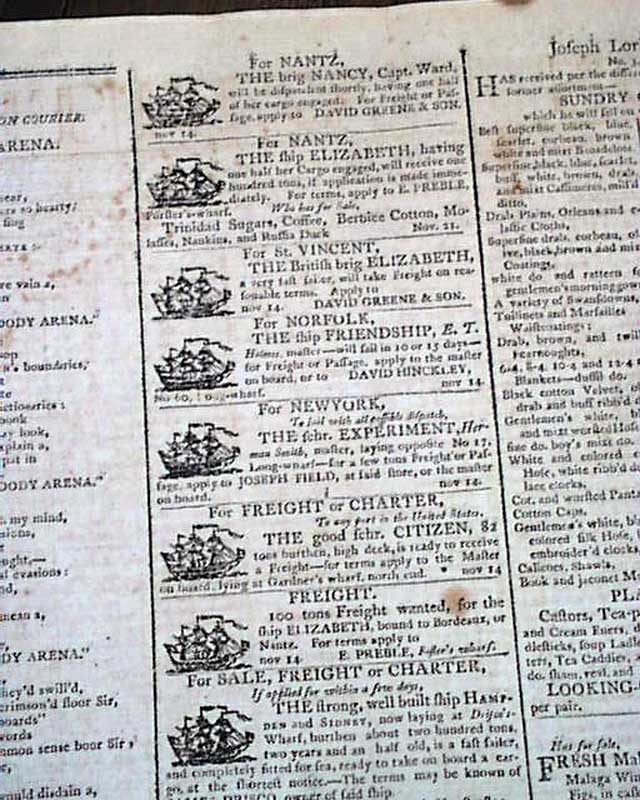 ON COURIER.
ARENA.
ear,
re so hearty;
fing
re vain a,
OODY ARENA."
op
n's boundaries,
ictionaries:
book
ay look,
xplain a,
put in
OODY ARENA."
my mind,
ought,—
al evasions:
nd,
mean a,
DY ARENA."
hey'd swill'd,
crimson'd floor Sir,
boards"
words
mmon sense boor Sir,
ould disdain a,
For NANTZ,
THE brig NANCY, Capt. Ward,
will be dispatched shortly, having one half
of her cargo engaged. For Freight or Paf-
fage, apply to DAVID GREENE & SON.
nov 14.
For NANTZ,
THE ship ELIZABETH, having
one half her Cargo engaged, will receive one
hundred tons, if application is made imme-
diately. For terms, apply to E. PREBLE,
Forster's-wharf. Who has for Sale,
Trinidad Sugars, Coffee, Berbice Cotton, Mo-
lasses, Nankins, and Russia Duck Nov. 21.
For St. VINCENT,
THE British brig ELIZABETH,
a very fast sailer, will take Freight on rea-
sonable terms. Apply to
nov 14. DAVID GREENE & SON.
For NORFOLK,
THE ship FRIENDSHIP, E. T.
Holmes, master—will sail in 10 or 15 days—
for Freight or Passage, apply to the master
on board, or to DAVID HINCKLEY,
No 60, Long-wharf. nov 14.
For NEWYORK,
To sail with all possible dispatch,
THE schr. EXPERIMENT, Her-
man Smith, master, laying opposite No 17,
Long-wharf—for a few tons Freight or Pas-
sage, apply to JOSEPH FIELD, at said store, or the master
on board. nov 14.
For FREIGHT or CHARTER,
To any port in the United States.
THE good schr. CITIZEN, 82
tons burthen, high deck, is ready to receive
a Freight—for terms apply to the Master
on board, lying at Gardner's wharf, north end. nov 14
FREIGHT.
100 tons Freight wanted, for the
ship ELIZABETH, bound to Bordeaux, or
Nantz. For terms apply to
nov 14. E. PREBLE, Foster's wharf.
For SALE, FREIGHT or CHARTER,
If applied for within a few days,
THE strong, well built ship HAMP-
DEN and SIDNEY, now laying at Drisco's-
Wharf, burthen about two hundred tons,
two years and an half old, is a fast sailer,
and completely fitted for sea, ready to take on board a car-
go, at the shortest notice.—The terms may be known of
DRISCO, owner of said ship.
Joseph Lor
No. 3,
HAS received per the differ
former assortment—
SUNDRY
which he will sell on
Best superfine black, blue,
scarlet, corbeau, brown
white and mixt Broadcloths.
Superfine, black, blue, scarlet,
buff, white, brown, drab,
and mixt Cassimeres, mill'd
ditto.
Drab Plains, Orleans and c
lastic Cloths,
Superfine drab, corbeau, ol
ive, black, brown and mix
Coatings,
white do and rattern f
gentlemen's morning gown
A variety of Swansdowns,
Toilinets and Marsailles
Waistcoatings;
Drab, brown, and twill
Fearnoughts,
6-4, 8-4, 10-4 and 12-4
Blankets—duffil do.
Black cotton Velvet,
drab and buff ribb'd d
Gentlemen's white,
and mixt worsted Hose
fine do. boy's mixt do.
White and colored
Hose, white ribb'd do
lace clocks,
Cot. and worsted Pant
Cotton Caps,
Gentlemen's white, b
colored silk Hose,
embroider'd clocks,
Calicoes, Shawls,
Book and jaconet M
PLA
Castors, Tea-p
and Cream Ewers, d
dlesticks, soup Ladle
ters, Tea Caddies,
do. sham, reel, and
LOOKING-
per pair.
Has for sale,
FRESH Mal
Malaga Win
Figs, in cas